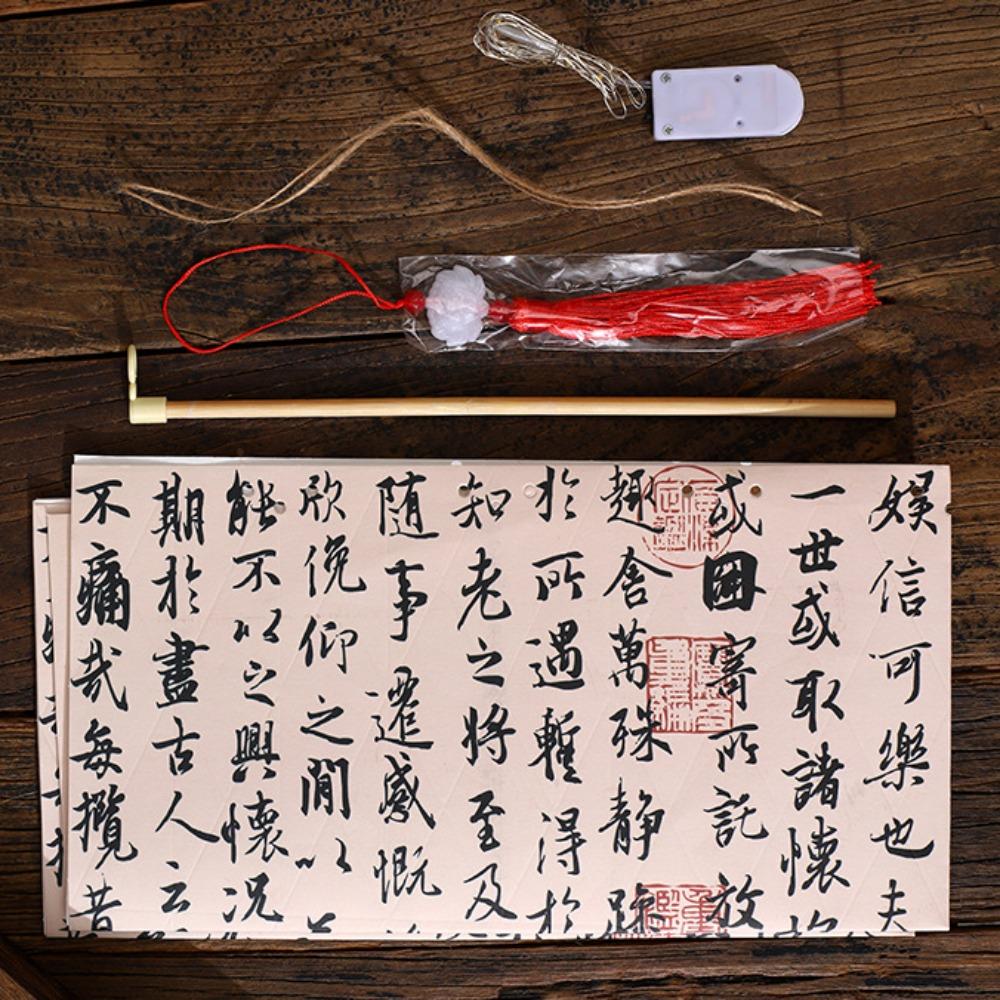 娱信可樂也夫
一世或取諸懷
或因寄所託放
趣舍萬殊静躁
於所遇暫得於
知老之将至及
随事遷感慨
欣俛仰之閒以
能不以之興懷况
期於盡古人云
不痛哉每攬昔